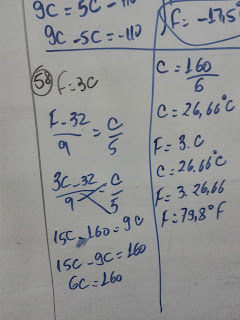 9C = 5C - 110
9C - 5C = -110
58 F = 3C
F - 32 = C
9 5
3C - 32 = C
9 5
15C - 160 = 9C
15C - 9C = 160
6C = 160
F = -17,5°
C = 160
6
C = 26,66°C
F = 3.C
C = 26,66°C
F = 3.26,66
F = 79,8°F